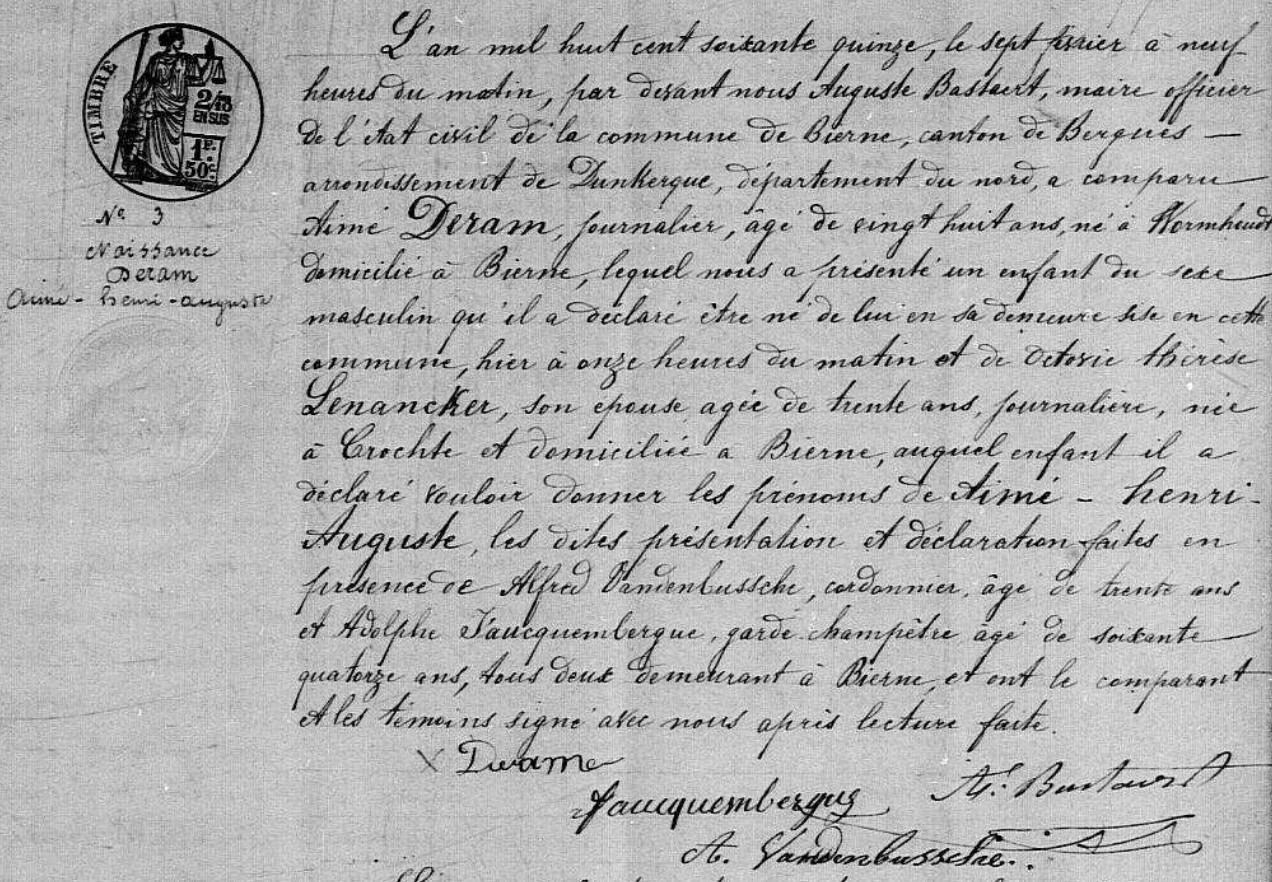 TIMBRE
2/10
EN SUS
1F.
50c.
N° 3
Naissance
Deram
Aimé - henri - auguste
L'an mil huit cent soixante quinze, le sept février à neuf
heures du matin, par devant nous Auguste Bastaert, maire officier
de l'état civil de la commune de Bierne, canton de Bergues —
arrondissement de Dunkerque, département du nord, a comparu
Aimé Deram, journalier, âgé de vingt huit ans, né à Wormhoudt
domicilié à Bierne, lequel nous a présenté un enfant du sexe
masculin qu'il a déclaré être né de lui en sa demeure sise en cette
commune, hier à onze heures du matin et de Octavie thérèse
Lenancker, son epouse agée de trente ans, journalière, née
à Crochte et domiciliée a Bierne, auquel enfant il a
déclaré vouloir donner les prénoms de Aimé - henri -
Auguste, les dites présentation et déclaration faites en
présence de Alfred Vandenbussche, cordonnier, âgé de trente ans
et Adolphe Faucquembergue, garde champêtre âgé de soixante
quatorze ans, tous deux demeurant à Bierne, et ont le comparant
et les témoins signé avec nous après lecture faite.
Derame
Faucquembergue
At. Bastaert
A. Vandenbussche